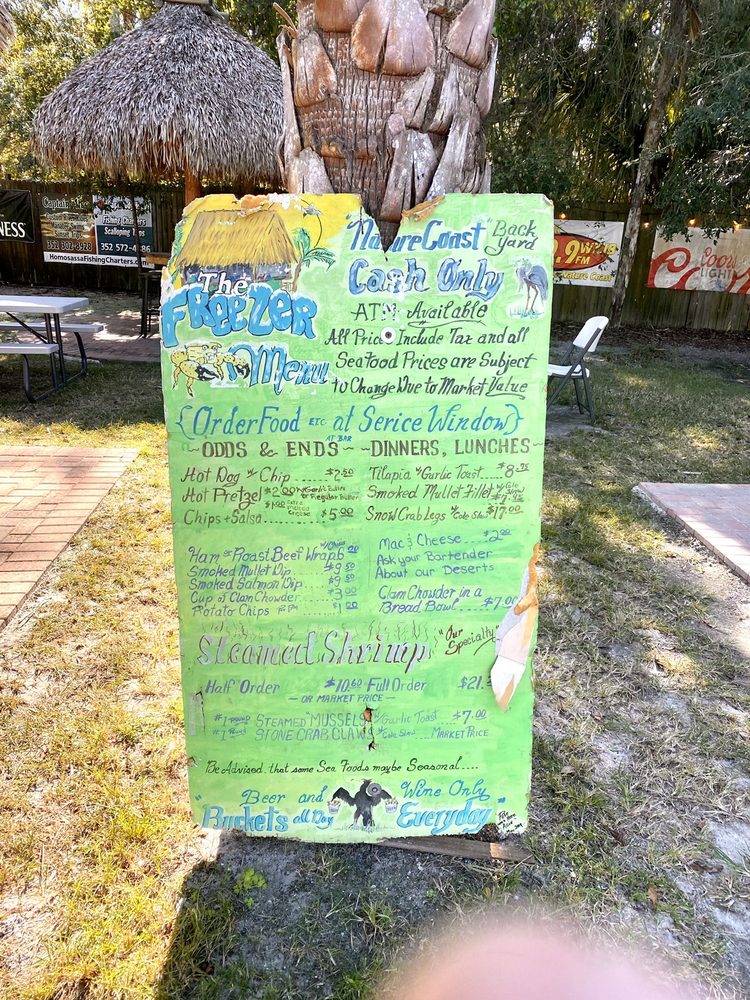 NESS
Captain
352 302-4928
Fishing Charters
Scalloping Trips
352 572-
HomosassaFishingCharters.com
.9 FM
Nature Coast
Coors
LIGHT
The
FReezeR
Menu
Nature Coast "Back yard"
Cash Only
ATM Available
All Price Include Tax and all
Seafood Prices are Subject
to Change Due to Market Value
{Order Food ETC at Serice Window}
AT BAR
~ ODDS & ENDS ~
Hot Dog w/ Chip .... $2.50
Hot Pretzel $2.00 w/ Garlic Butter or Regular Butter
$1.00 extra melted cheese
Chips + Salsa .......... $5.00
Ham or Roast Beef Wrap w/Chips
Smoked Mullet Dip
Smoked Salmon Dip
Cup of Clam Chowder $3.00
Potato Chips $1.00
~ DINNERS, LUNCHES ~
Tilapia w/Garlic Toast ..... $8.95
Smoked Mullet Fillet
Snow Crab Legs w/ Cole Slaw $17.00
Mac & Cheese ..... $2.00
Ask your Bartender
About our Deserts
Clam Chowder in a
Bread Bowl ..... $7.00
Steamed Shrimp "Our Specialty"
Half Order $10.60 Full Order $21.
— OR MARKET PRICE —
#1 Pound STEAMED MUSSELS w/Garlic Toast ... $7.00
#1 Pound STONE CRAB CLAWS w/ Cole Slaw .... MARKET PRICE
Be Advised that some Sea Foods maybe Seasonal....
Beer and Wine Only
Buckets all Day Everyday